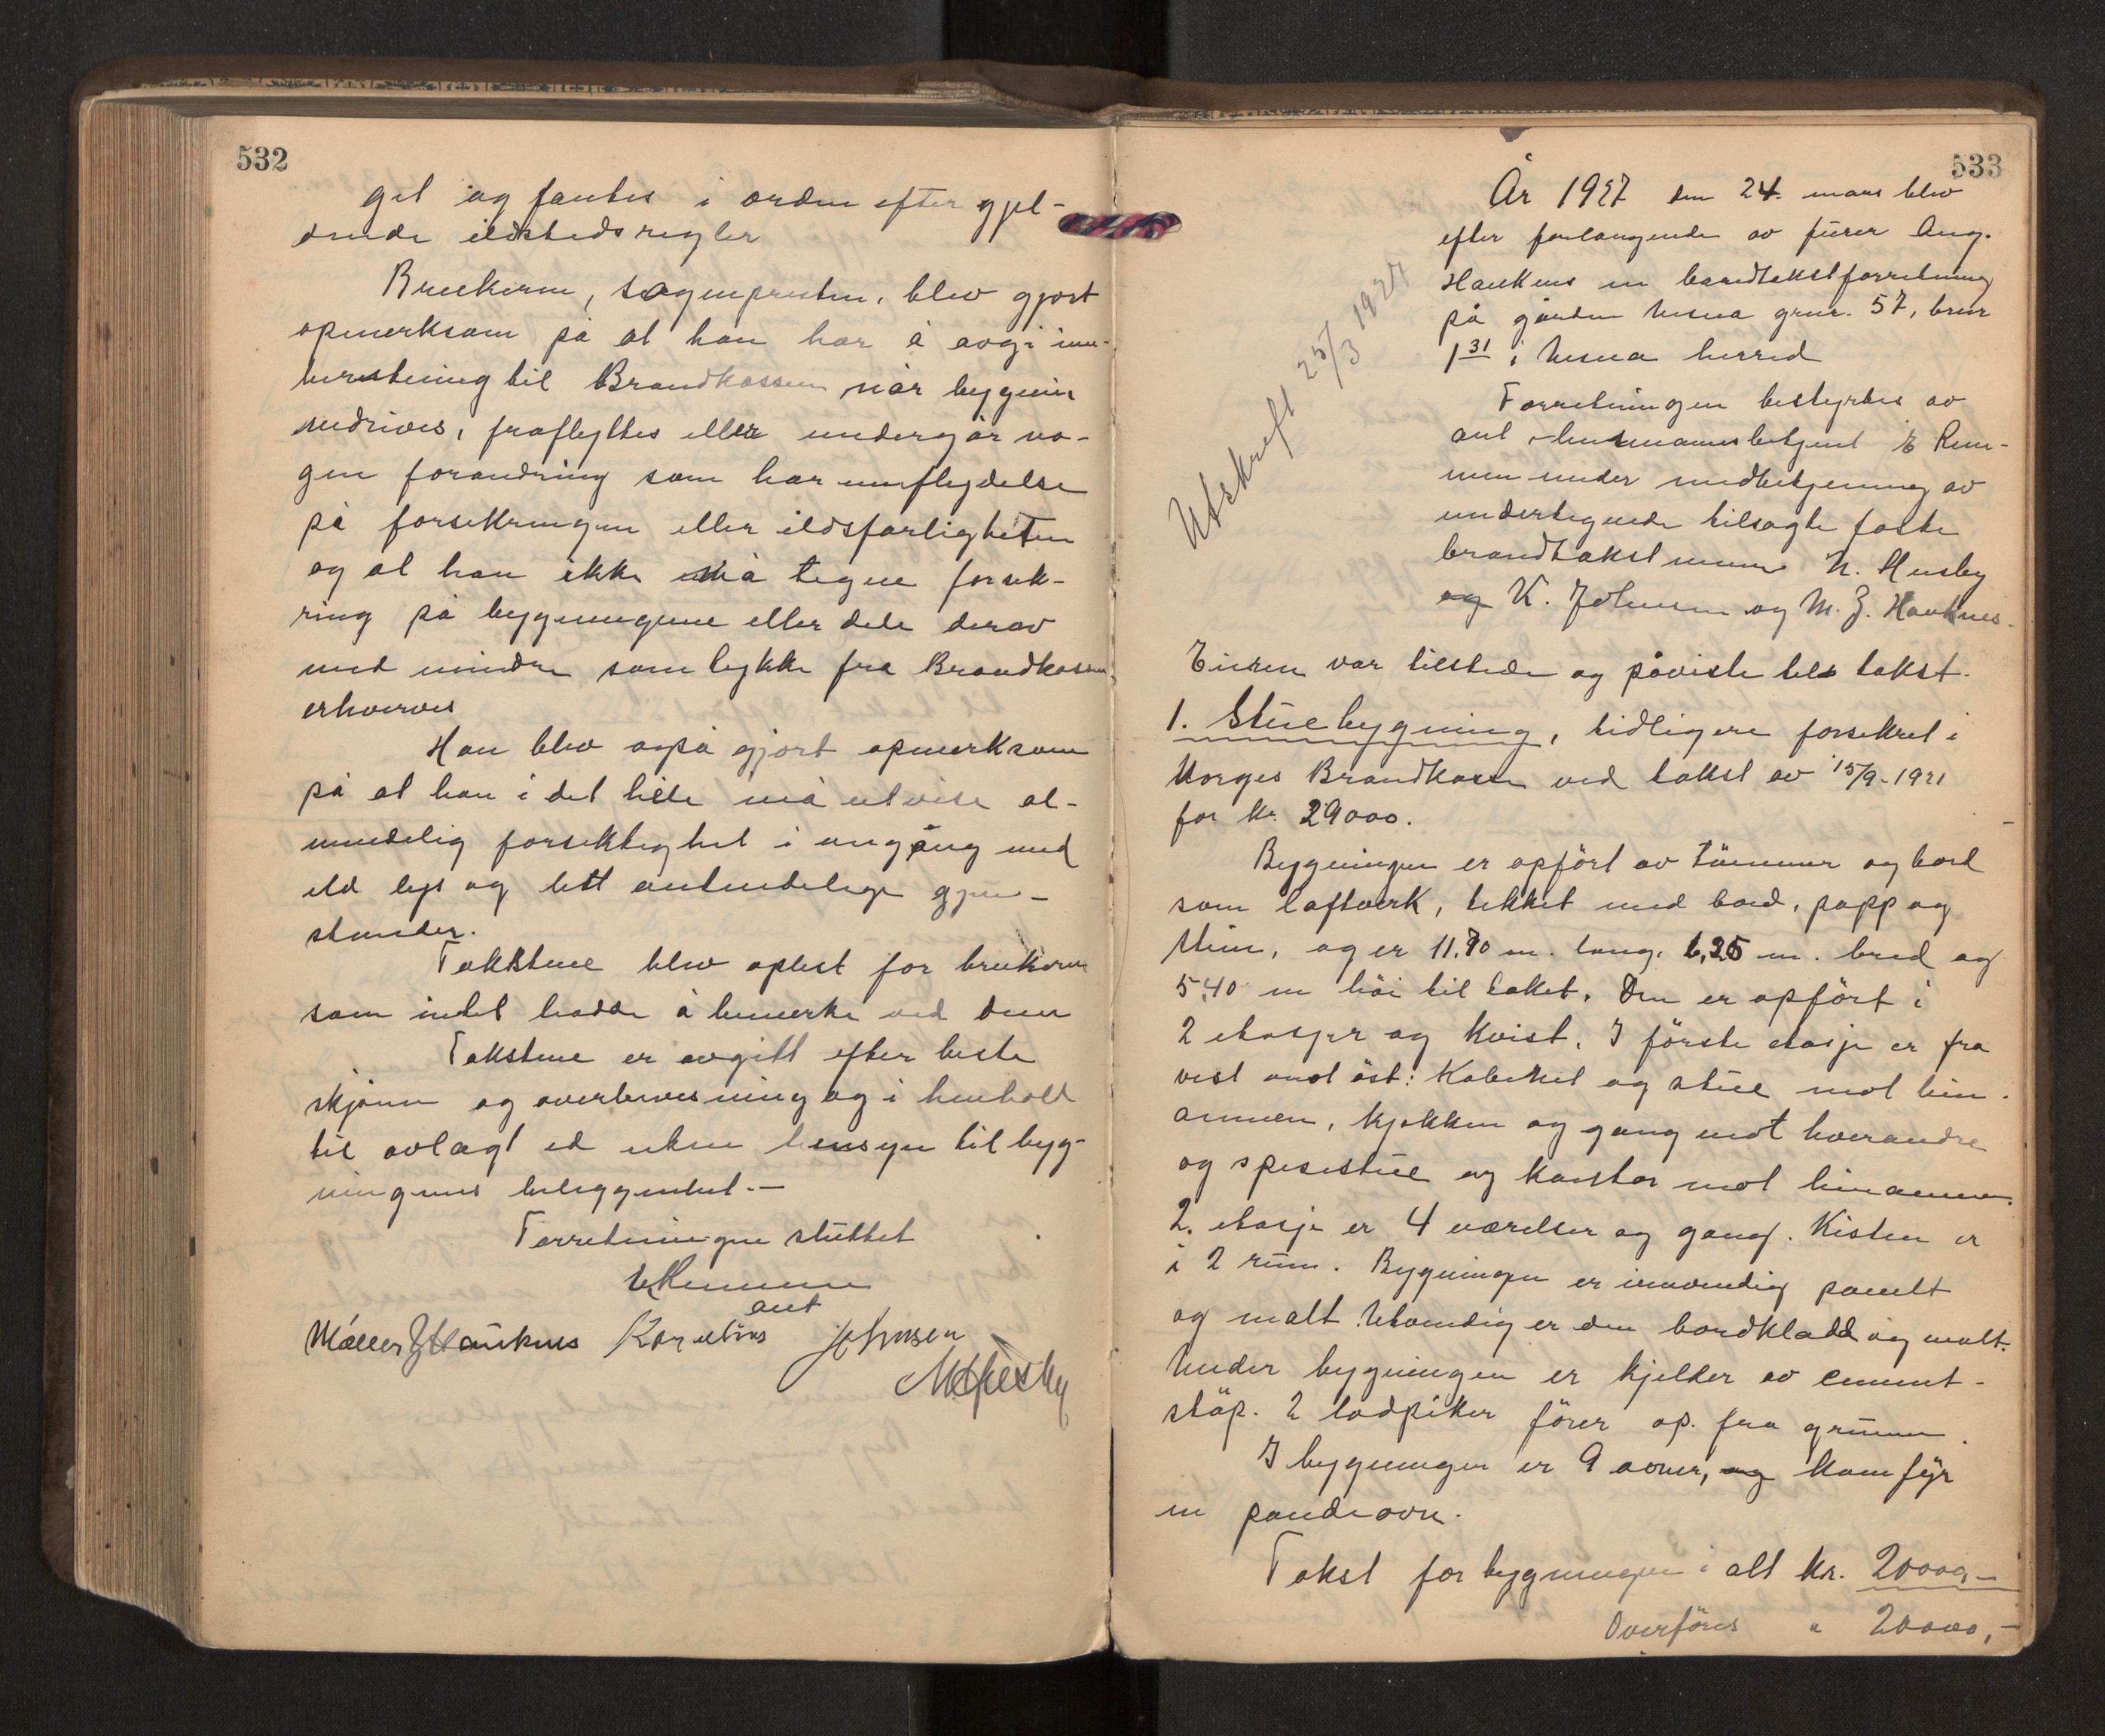 532
get og fantes i orden efter gjel-
dende ildstedsregler
Brukeren, sognepresten, blev gjort
opmerksom på at han har å avgi inn-
beretning til Brandkassen når bygning
nedrives, fraflyttes eller undergår no-
gen forandring som har innflydelse
på forsikringen eller ildsfarligheten
og at han ikke må tegne forsik-
ring på bygningene eller dele derav
med mindre samtykke fra Brandkassen
erhverves
Han blev også gjort opmerksom
på at han i det hele må utvise al-
mindelig forsiktighet i omgång med
ild lys og lett antendelige gjen-
stander.
Takstene blev oplest for brukeren
som intet hadde å bemerke ved dem
Takstene er avgitt efter beste
skjønn og overbevisning og i henhold
til avlagt ed uten hensyn til byg-
ningenes beliggenhet.-
Forretningen sluttet
E Remmen
aut
Møller Z Hauknes Kornelius Johnsen
N Husby
533
År 1927 den 24. mars blev
efter forlangende av eieren Aug.
Haukens en brandtakstforretning
på gården Nesna gnr. 57, bnr
1 31 i Nesna herred
Forretningen bestyrtes av
aut lensmannsbetjent E Rem-
men under medbetjening av
undertegnede tilsagte faste
brandtakstmenn N. Husby
og K. Johnsen og M. Z. Hauknes.
Utskrift 25/3 1927
Eieren var tilstede og påviste til takst.
1. Stuebygning, tidligere forsikret i
Norges Brandkasse ved takst av 15/9-1921
for kr. 29000.
Bygningen er opført av tømmer og bord
som laftverk, tekket med bord, papp og
sten, og er 11.70 m. lang, 6,25 m. bred og
5,40 m høi til taket. Den er opført i
2 etasjer og kvist. I første etasje er fra
vest mot øst: Kabinet og stue mot hin-
annen, kjøkken og gang mot hverandre
og spisestue og kontor mot hinannen.
2. etasje er 4 værelser og gang. Kisten er
i 2 rum. Bygningen er innvendig panelt
og malt. Utvendig er den bordkladd og malt.
Under bygningen er kjelder av cement-
støp. 2 lodpiker fører op fra grunnen.
I bygningen er 9 ovner, og komfyr
en pandeovn.
Takst for bygningen i alt kr. 20000,-
Overføres " 20000,-